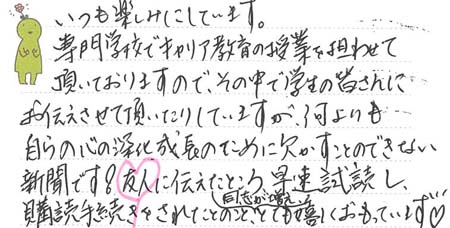 いつも楽しみにしています。
専門学校でキャリア教育の授業を担わせて
頂いておりますので、その中で学生の皆さんに
お伝えさせて頂いたりしていますが、何よりも
自らの心の深化成長のために欠かすことのできない
新聞です！友人に伝えたところ、早速試読し、
購読手続きをされたとのこと、とても嬉しくおもっています